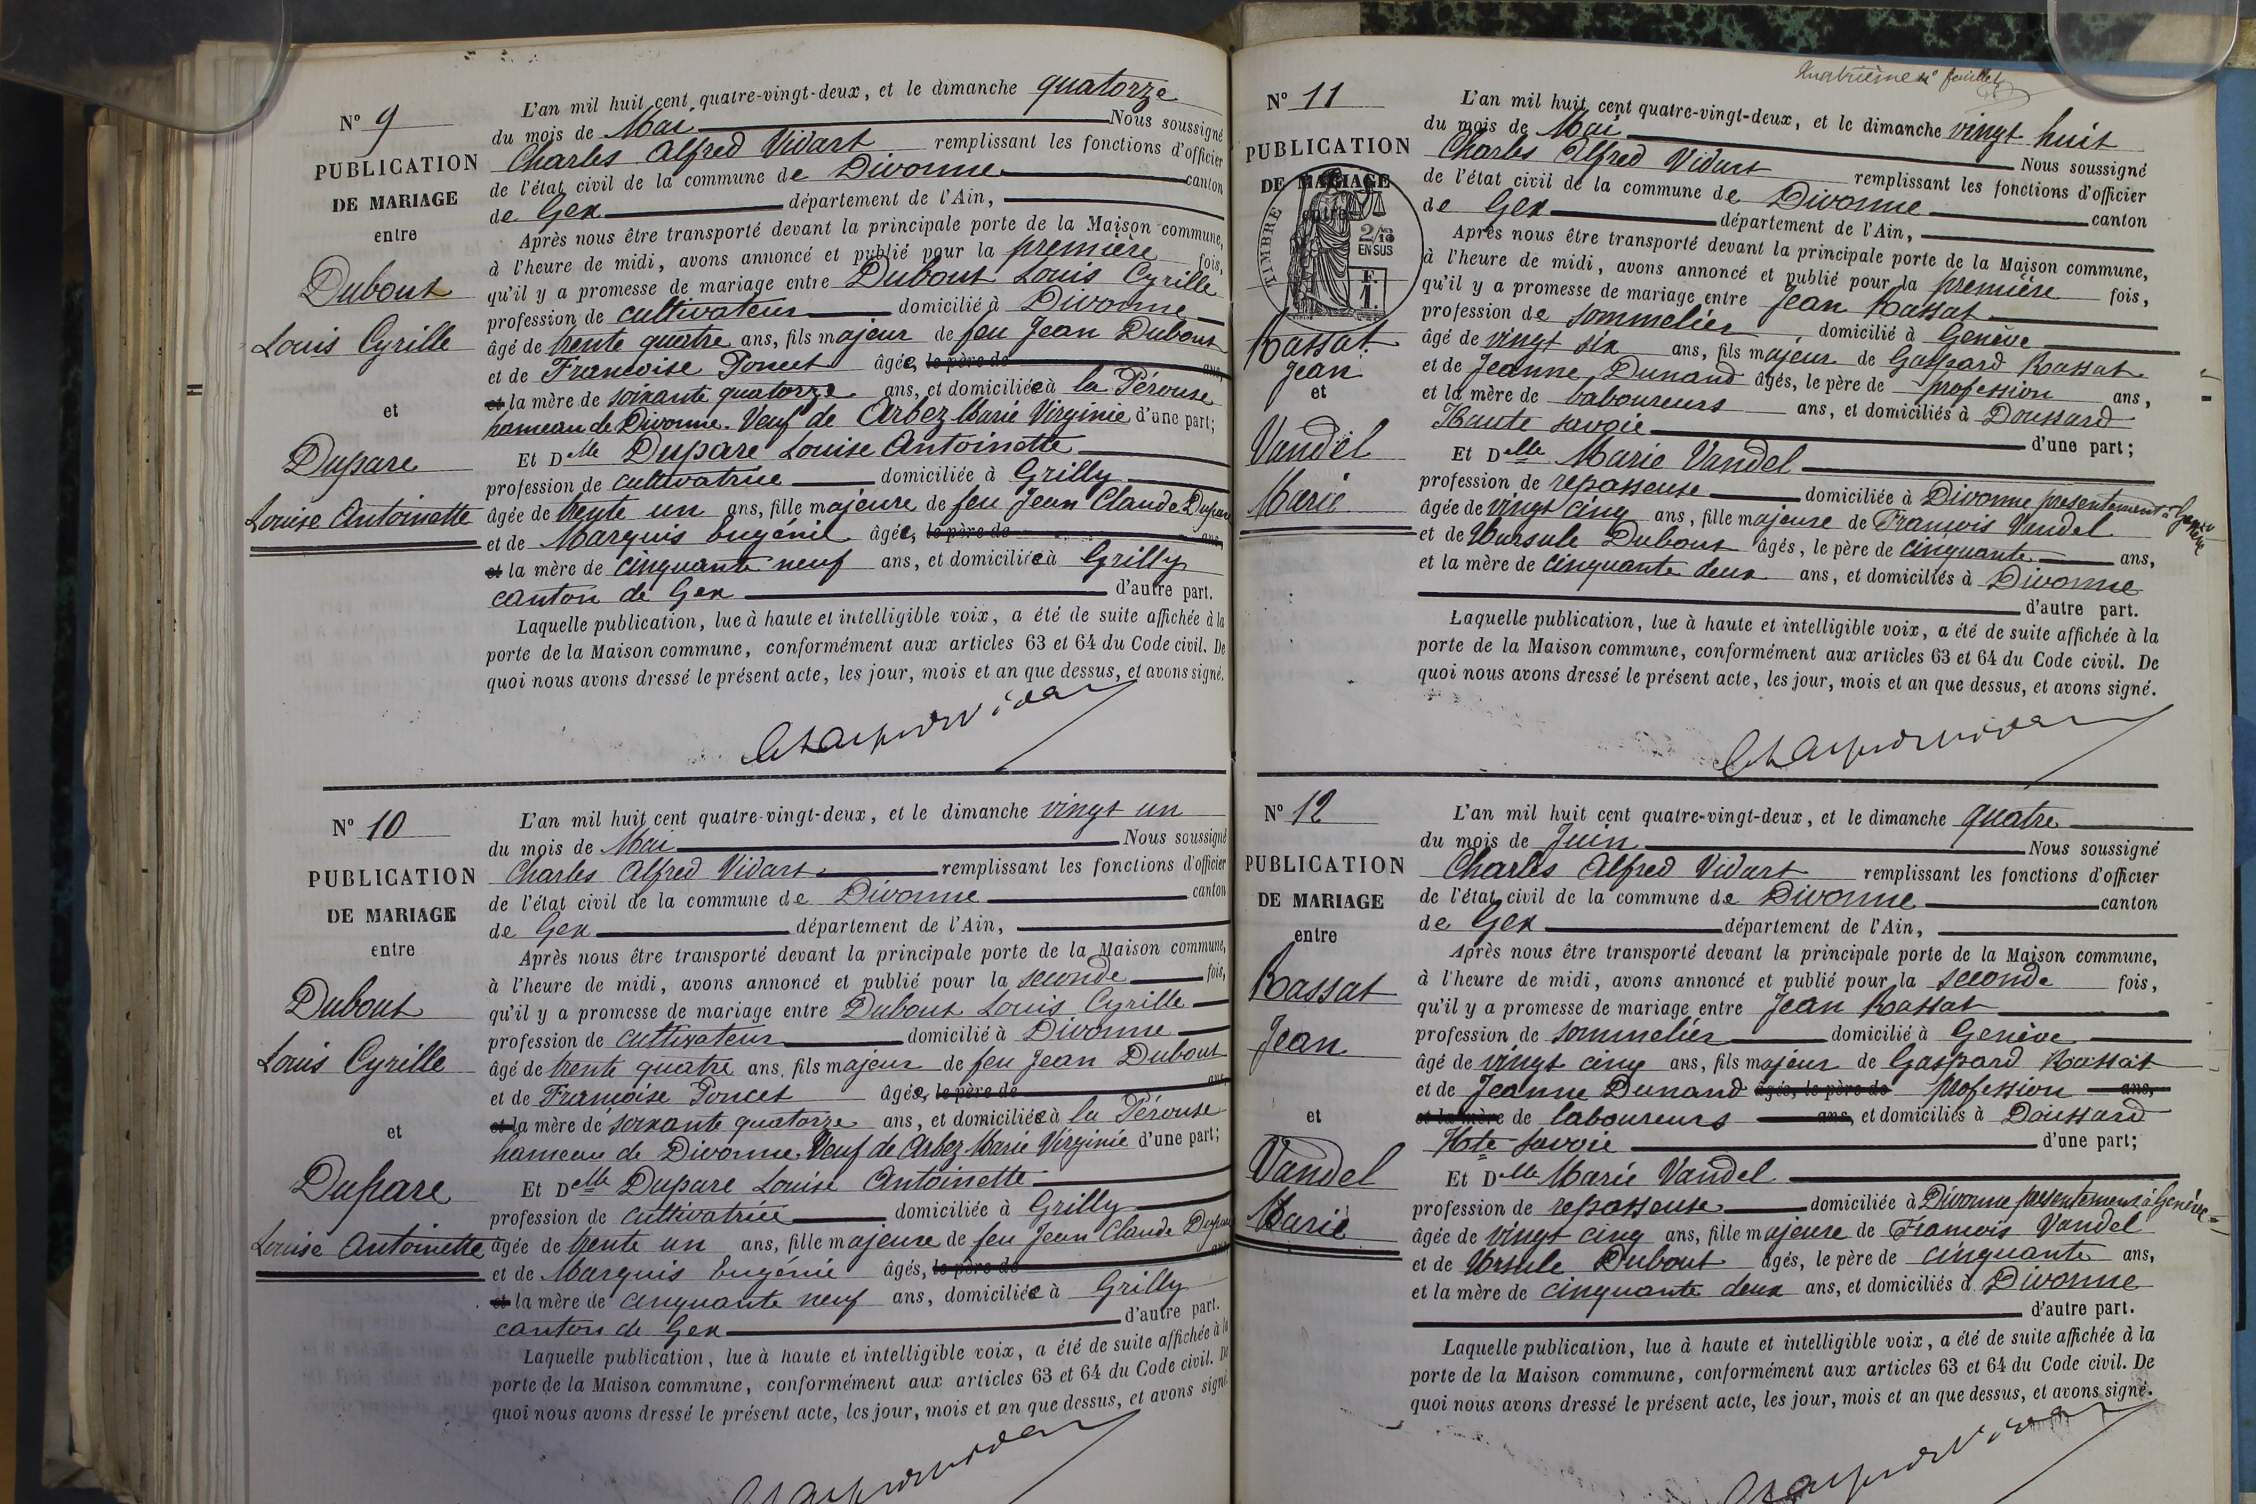 N° 9
PUBLICATION
DE MARIAGE
entre
Dubout
Louis Cyrille
et
Dupare
Louise Antoinette
L'an mil huit cent quatre-vingt-deux, et le dimanche quatorze
du mois de Mai Nous soussigné
Charles Alfred Vidart remplissant les fonctions d'officier
de l'état civil de la commune de Divonne canton
de Gex département de l'Ain,
Après nous être transporté devant la principale porte de la Maison commune,
à l'heure de midi, avons annoncé et publié pour la première fois,
qu'il y a promesse de mariage entre Dubout Louis Cyrille
profession de cultivateur domicilié à Divonne
âgé de trente quatre ans, fils majeur de feu Jean Dubout
et de Françoise Poncet âgée, le père de ans,
et la mère de soixante quatorze ans, et domiciliée à la Pérouse
hameau de Divonne. Veuf de Arbez Marie Virginie d'une part;
Et Delle Dupare Louise Antoinette
profession de cultivatrice domiciliée à Grilly
âgée de trente un ans, fille majeure de feu Jean Claude Dupare
et de Marquis Eugénie âgée, le père de ans,
et la mère de cinquante neuf ans, et domiciliée à Grilly
canton de Gex d'autre part.
Laquelle publication, lue à haute et intelligible voix, a été de suite affichée à la
porte de la Maison commune, conformément aux articles 63 et 64 du Code civil. De
quoi nous avons dressé le présent acte, les jour, mois et an que dessus, et avons signé.
N° 10
PUBLICATION
DE MARIAGE
entre
Dubout
Louis Cyrille
et
Dupare
Louise Antoinette
L'an mil huit cent quatre-vingt-deux, et le dimanche vingt un
du mois de Mai Nous soussigné
Charles Alfred Vidart remplissant les fonctions d'officier
de l'état civil de la commune de Divonne canton
de Gex département de l'Ain,
Après nous être transporté devant la principale porte de la Maison commune,
à l'heure de midi, avons annoncé et publié pour la seconde fois,
qu'il y a promesse de mariage entre Dubout Louis Cyrille
profession de cultivateur domicilié à Divonne
âgé de trente quatre ans, fils majeur de feu Jean Dubout
et de Françoise Poncet âgée, le père de ans,
et la mère de soixante quatorze ans, et domiciliée à la Pérouse
hameau de Divonne. Veuf de Arbez Marie Virginie d'une part;
Et Delle Dupare Louise Antoinette
profession de cultivatrice domiciliée à Grilly
âgée de trente un ans, fille majeure de feu Jean Claude Dupare
et de Marquis Eugénie âgés, le père de ans
et la mère de cinquante neuf ans, domiciliée à Grilly
canton de Gex d'autre part.
Laquelle publication, lue à haute et intelligible voix, a été de suite affichée à la
porte de la Maison commune, conformément aux articles 63 et 64 du Code civil. De
quoi nous avons dressé le présent acte, les jour, mois et an que dessus, et avons signé
Quatrième feuillet
N° 11
PUBLICATION
DE MARIAGE
entre
TIMBRE
2/10
EN SUS
F.
1.
Rassat
Jean
et
Vandel
Marie
L'an mil huit cent quatre-vingt-deux, et le dimanche vingt huit
du mois de Mai Nous soussigné
Charles Alfred Vidart remplissant les fonctions d'officier
de l'état civil de la commune de Divonne canton
de Gex département de l'Ain,
Après nous être transporté devant la principale porte de la Maison commune,
à l'heure de midi, avons annoncé et publié pour la première fois,
qu'il y a promesse de mariage entre Jean Rassat
profession de sommelier domicilié à Genève
âgé de vingt six ans, fils majeur de Gaspard Rassat
et de Jeanne Dunand âgés, le père de profession ans,
et la mère de laboureurs ans, et domiciliés à Doussard
Haute savoie d'une part;
Et Delle Marie Vandel
profession de repasseuse domiciliée à Divonne presentement à Genève
âgée de vingt cinq ans, fille majeure de François Vandel
et de Hursule Dubout âgés, le père de cinquante ans,
et la mère de cinquante deux ans, et domiciliés à Divonne
d'autre part.
Laquelle publication, lue à haute et intelligible voix, a été de suite affichée à la
porte de la Maison commune, conformément aux articles 63 et 64 du Code civil. De
quoi nous avons dressé le présent acte, les jour, mois et an que dessus, et avons signé.
N° 12
PUBLICATION
DE MARIAGE
entre
Rassat
Jean
et
Vandel
Marie
L'an mil huit cent quatre-vingt-deux, et le dimanche quatre
du mois de Juin Nous soussigné
Charles Alfred Vidart remplissant les fonctions d'officier
de l'état civil de la commune de Divonne canton
de Gex département de l'Ain,
Après nous être transporté devant la principale porte de la Maison commune,
à l'heure de midi, avons annoncé et publié pour la seconde fois,
qu'il y a promesse de mariage entre Jean Rassat
profession de sommelier domicilié à Genève
âgé de vingt cinq ans, fils majeur de Gaspard Rassat
et de Jeanne Dunand âgés, le père de profession ans,
et la mère de laboureurs ans, et domiciliés à Doussard
Hte savoie d'une part;
Et Delle Marie Vandel
profession de repasseuse domiciliée à Divonne presentement à Genève
âgée de vingt cinq ans, fille majeure de François Vandel
et de Ursule Dubout âgés, le père de cinquante ans,
et la mère de cinquante deux ans, et domiciliés à Divonne
d'autre part.
Laquelle publication, lue à haute et intelligible voix, a été de suite affichée à la
porte de la Maison commune, conformément aux articles 63 et 64 du Code civil. De
quoi nous avons dressé le présent acte, les jour, mois et an que dessus, et avons signé.